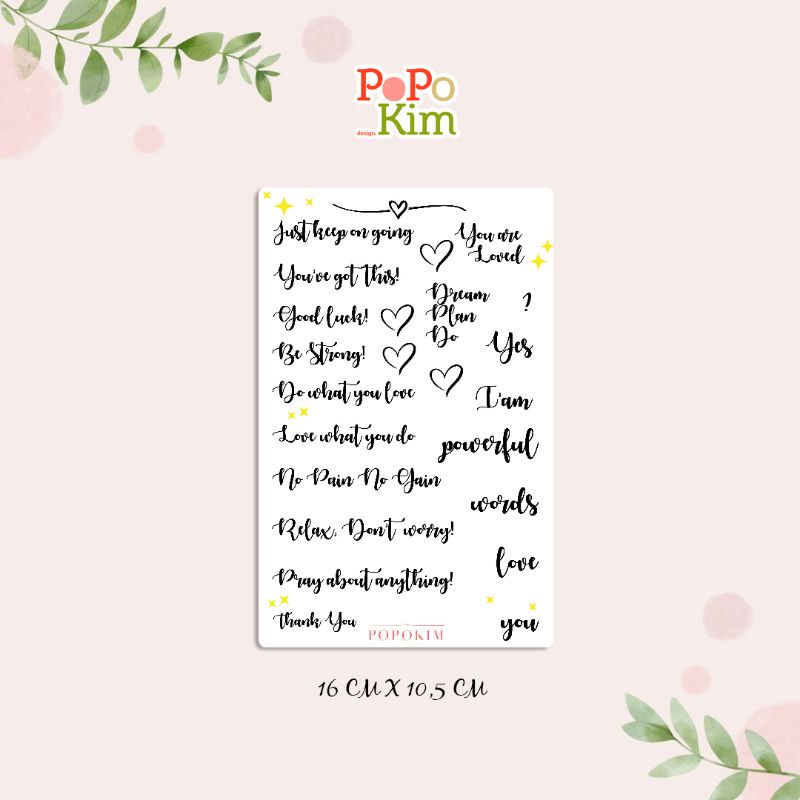 PoPo
design.
Kim
Just keep on going
You've got This!
Good luck!
Be Strong!
Do what you love
Love what you do
No Pain No Gain
Relax, Don't worry!
Pray about anything!
Thank You
You are
Loved
Dream
Plan
Do
?
Yes
I'am
powerful
words
love
you
POPOKIM
16 CM X 10,5 CM